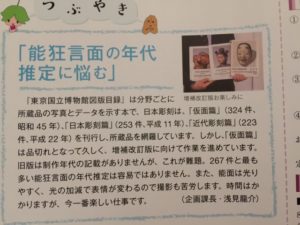 つぶやき
「能狂言面の年代
推定に悩む」
増補改訂版お楽しみに
『東京国立博物館図版目録』は分野ごとに
所蔵品の写真とデータを示す本で、日本彫刻は、「仮面篇」(324件、
昭和45年)、「日本彫刻篇」(253件、平成11年)、「近代彫刻篇」(223
件、平成22年)を刊行し、所蔵品を網羅しています。しかし、「仮面篇」
は品切れとなって久しく、増補改訂版に向けて作業を進めています。
旧版は制作年代の記載がありませんが、これが難題。267件と最も
多い能狂言面の年代推定は容易ではありません。また、能面は光り
やすく、光の加減で表情が変わるので撮影も苦労します。時間はか
かりますが、今一番楽しい仕事です。
(企画課長・浅見龍介)